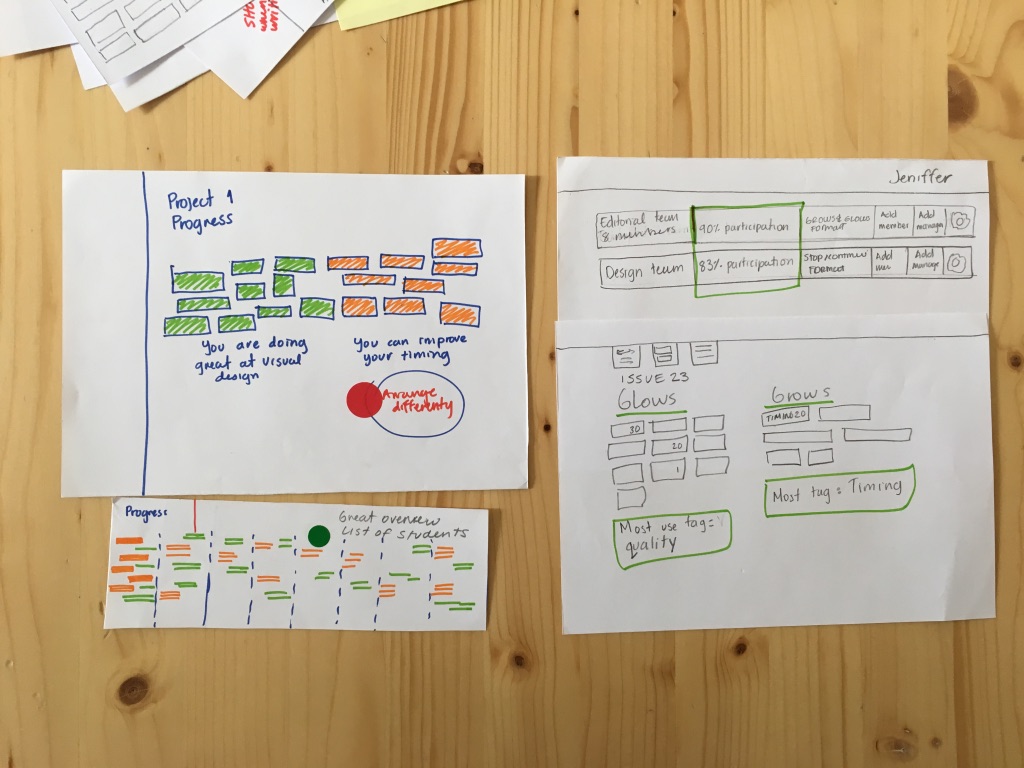 Project 1
Progress
You are doing
great at visual
design
You can improve
your timing
Arrange
differenty
Progress
Great overview
List of students
Jeniffer
Editorial team
8 members
90% participation
GROWS & GLOWS
FORMAT
Add
member
Add
manage
Design team
83% participation
STOP/CONTINUE
FORMAT
Add
Add
manage
ISSUE 23
Glows
30
20
1
Most use tag =
quality
Grows
TIMING 20
Most tag = Timing